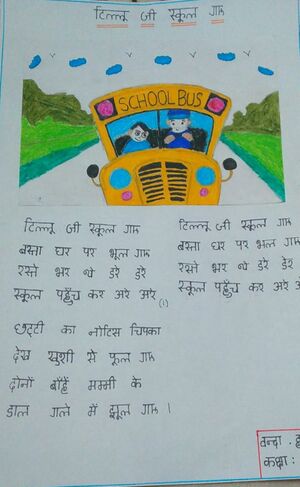 टिल्लू जी स्कूल गए
SCHOOL BUS
टिल्लू जी स्कूल गए
बस्ता घर पर भूल गए
रस्ते भर थे डरे डरे
स्कूल पहुँच कर अरे अरे (1)
छुट्टी का नोटिस चिपका
देख खुशी से फूल गए
दोनों बाँहें मम्मी के
डाल गले में झूल गए ।
टिल्लू जी स्कूल गए
बस्ता घर पर भूल गए
रस्ते भर थे डरे डरे
स्कूल पहुँच कर अरे
कक्षा :